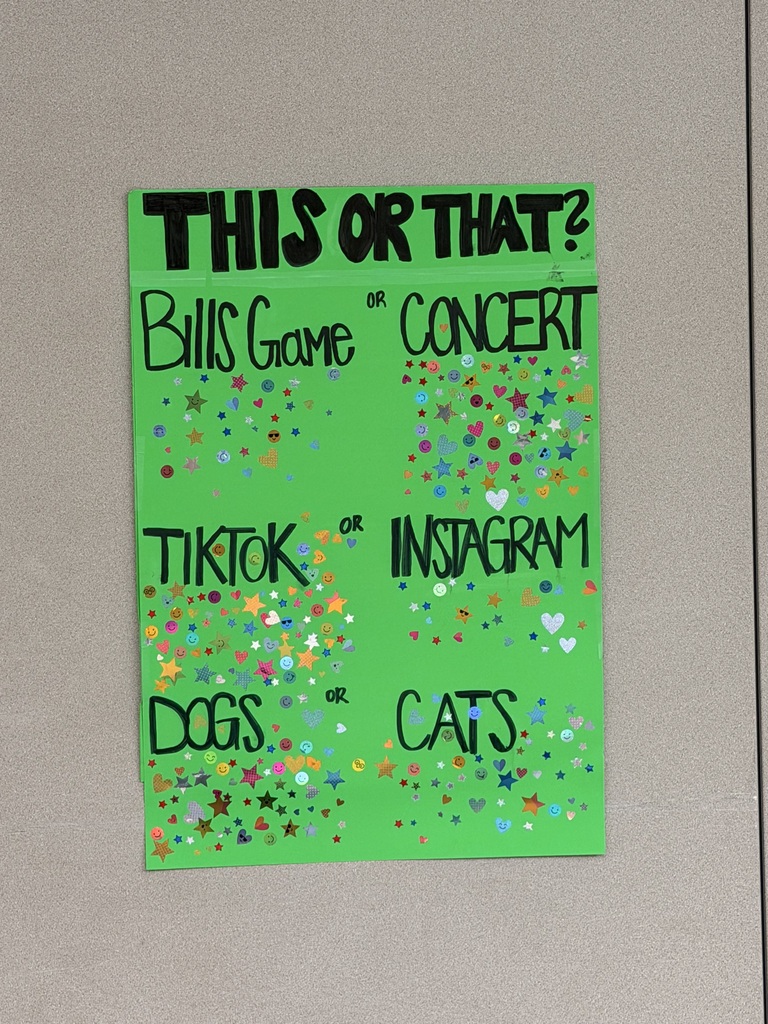 THIS OR THAT?
BillS Game OR CONCERT
TIKTOK OR INSTAGRAM
DOGS OR CATS